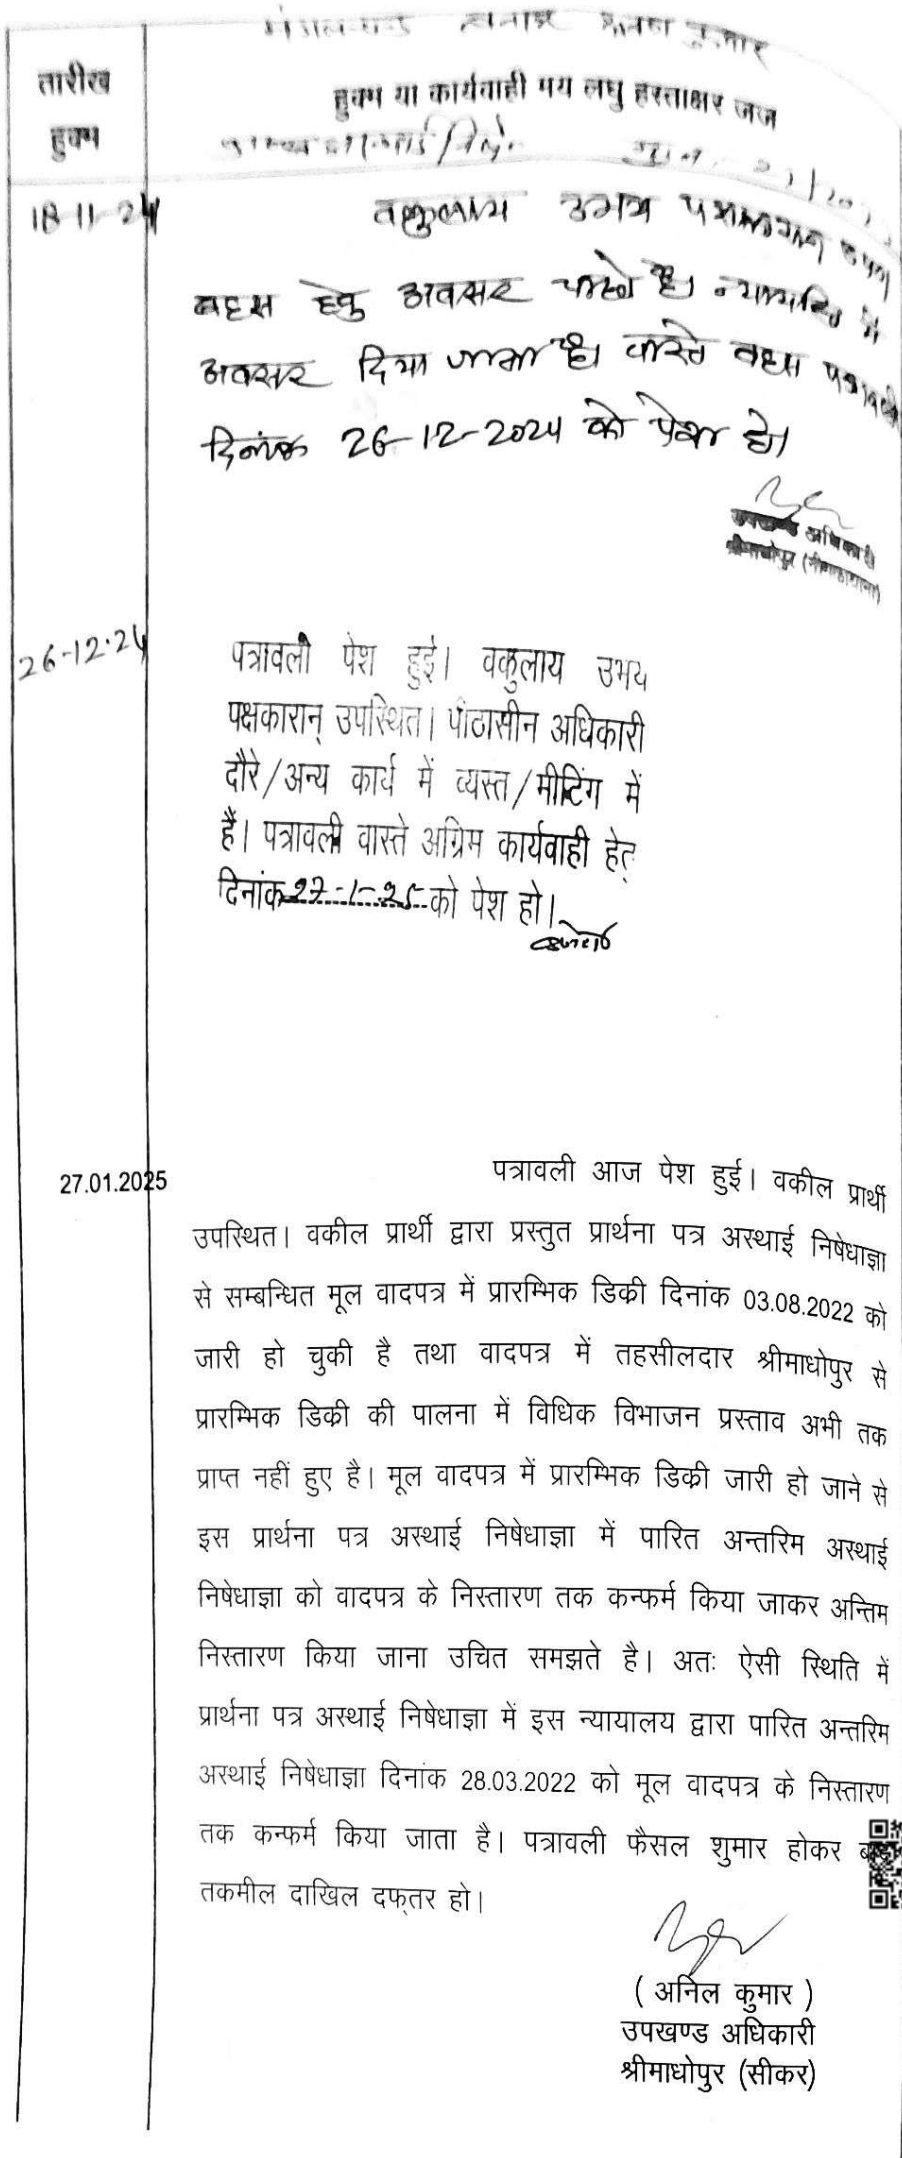 तारीख
हुक्म
हुक्म या कार्यवाही मय लघु हस्ताक्षर जज
18-11-24
वकुलाय उभय
बहस हेतु अवसर चाहते है। न्यायहित में
अवसर दिया जाता है। वास्ते बहस पत्रावली
दिनांक 26-12-2024 को पेश हो।
उपखण्ड अधिकारी
श्रीमाधोपुर (नीमकाथाना)
26-12-24
पत्रावली पेश हुई। वकुलाय उभय
पक्षकारान् उपस्थित। पीठासीन अधिकारी
दौरे/अन्य कार्य में व्यस्त/मीटिंग में
है। पत्रावली वास्ते अग्रिम कार्यवाही हेतु
दिनांक 27-1-25 को पेश हो।
27.01.2025
पत्रावली आज पेश हुई। वकील प्रार्थी
उपस्थित। वकील प्रार्थी द्वारा प्रस्तुत प्रार्थना पत्र अस्थाई निषेधाज्ञा
से सम्बन्धित मूल वादपत्र में प्रारम्भिक डिक्री दिनांक 03.08.2022 को
जारी हो चुकी है तथा वादपत्र में तहसीलदार श्रीमाधोपुर से
प्रारम्भिक डिक्री की पालना में विधिक विभाजन प्रस्ताव अभी तक
प्राप्त नहीं हुए है। मूल वादपत्र में प्रारम्भिक डिक्री जारी हो जाने से
इस प्रार्थना पत्र अस्थाई निषेधाज्ञा में पारित अन्तरिम अस्थाई
निषेधाज्ञा को वादपत्र के निस्तारण तक कन्फर्म किया जाकर अन्तिम
निस्तारण किया जाना उचित समझते है। अतः ऐसी स्थिति में
प्रार्थना पत्र अस्थाई निषेधाज्ञा में इस न्यायालय द्वारा पारित अन्तरिम
अस्थाई निषेधाज्ञा दिनांक 28.03.2022 को मूल वादपत्र के निस्तारण
तक कन्फर्म किया जाता है। पत्रावली फैसल शुमार होकर
तकमील दाखिल दफ्तर हो।
( अनिल कुमार )
उपखण्ड अधिकारी
श्रीमाधोपुर (सीकर)